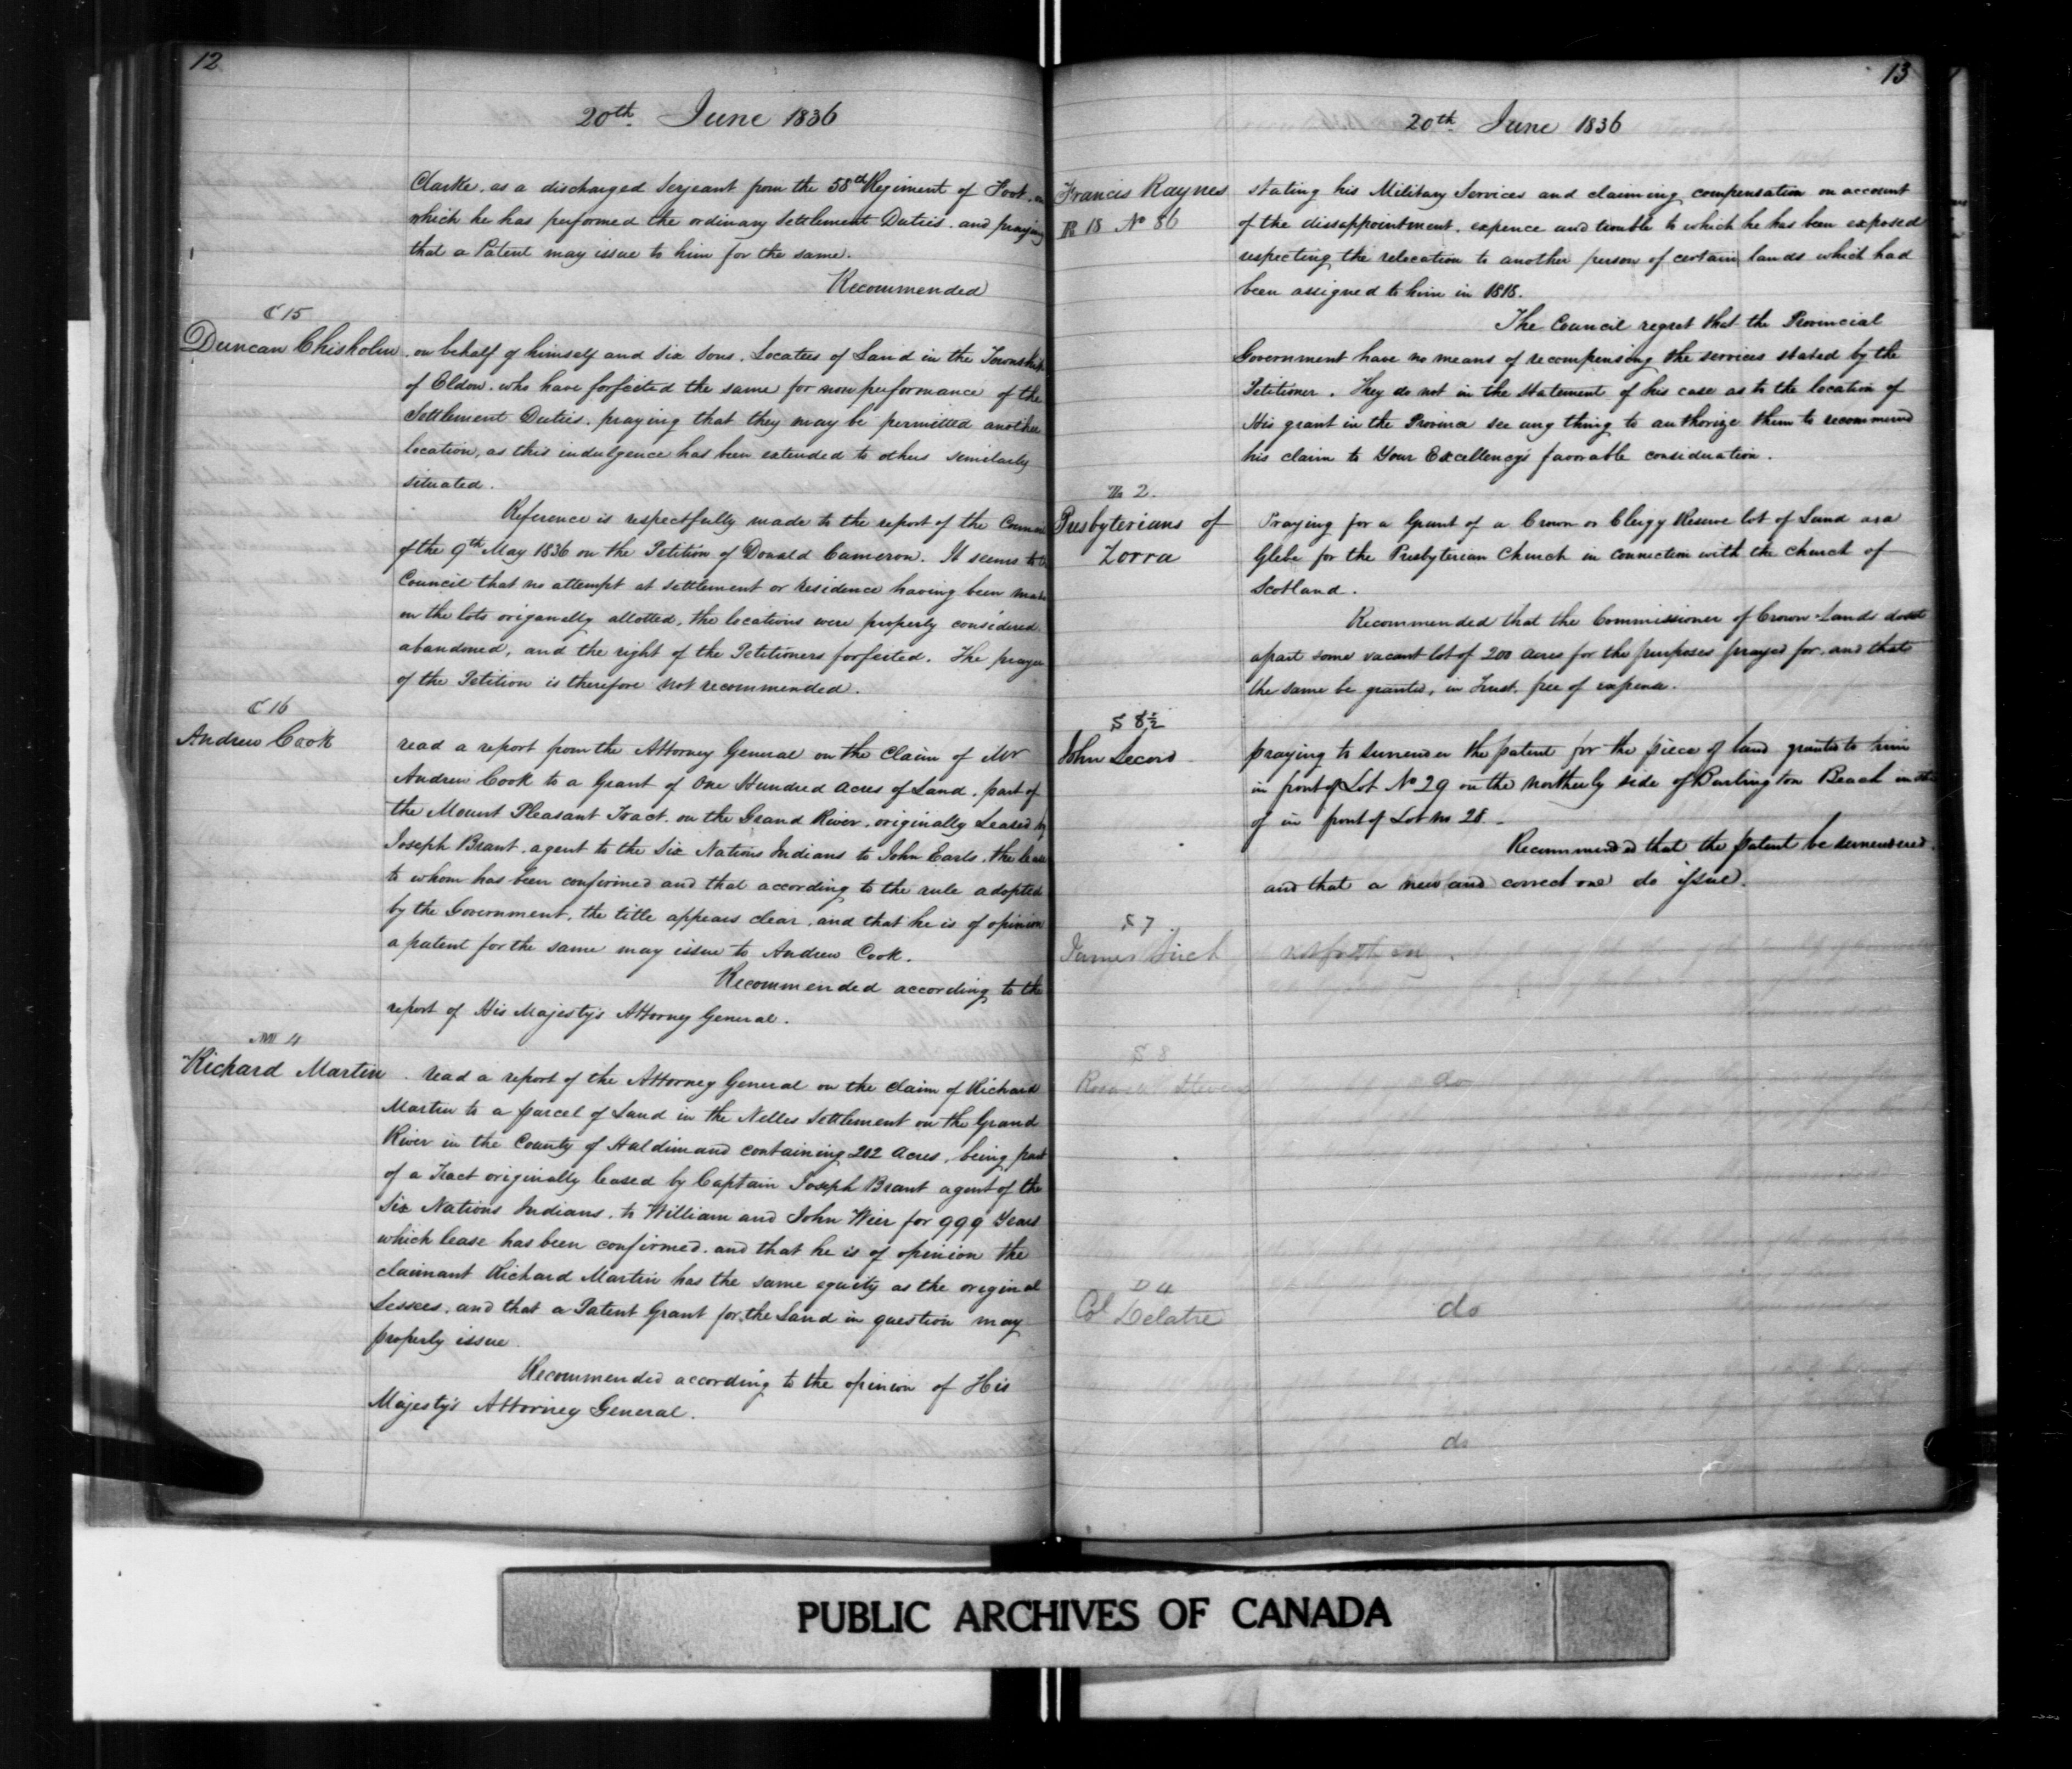 12
20th June 1836
Clarke, as a discharged Serjeant from the 58th Regiment of Foot, on
which he has performed the ordinary Settlement Duties, and praying
that a Patent may issue to him for the same.
Recommended
C 15
Duncan Chisholm. on behalf of himself and six sons, Locatees of Land in the Township
of Eldon, who have forfeited the same for non performance of the
Settlement Duties, praying that they may be permitted another
location, as this indulgence has been extended to others similarly
situated.
Reference is respectfully made to the report of the Council
of the 9th May 1836 on the Petition of Donald Cameron. It seems to the
Council that no attempt at settlement or residence having been made
on the lots origanally allotted, the locations were properly considered
abandoned, and the right of the Petitioners forfeited. The prayer
of the Petition is therefore not recommended.
C 16
Andrew Cook
read a report from the Attorney General on the Claim of Mr
Andrew Cook to a Grant of One Hundred acres of Land, part of
the Mount Pleasant Tract, on the Grand River, originally Leased by
Joseph Brant, agent to the Six Nations Indians to John Earls, the lease
to whom has been confirmed and that according to the rule adopted
by the Government, the title appears clear, and that he is of opinion
a patent for the same may issue to Andrew Cook.
Recommended according to the
report of His Majesty's Attorney General.
M 4
Richard Martin. read a report of the Attorney General on the claim of Richard
Martin to a parcel of Land in the Nelles Settlement on the Grand
River in the County of Haldimand containing 202 Acres, being part
of a Tract originally leased by Captain Joseph Brant agent of the
Six Nations Indians, to William and John Wier for 999 Years
which lease has been confirmed, and that he is of opinion the
claimant Richard Martin has the same equity as the original
Lessees, and that a Patent Grant for the Land in question may
properly issue.
Recommended according to the opinion of His
Majesty's Attorney General.
13
20th June 1836
Francis Raynes stating his Military Services and claiming compensation on account
R 18 No 86 of the dissappointment, expence and trouble to which he has been exposed
respecting the relocation to another person of certain lands which had
been assigned to him in 1818.
The Council regret that the Provincial
Government have no means of recompensing the services stated by the
Petitioner. They do not in the statement of his case as to the location of
His grant in the Province see any thing to authorize them to recommend
his claim to Your Excellency's favorable consideration.
2.
Presbyterians of Praying for a Grant of a Crown or Clergy Reserve lot of Land as a
Zorra Glebe for the Presbyterian Church in connection with the church of
Scotland.
Recommended that the Commissioner of Crown Lands do set
apart some vacant lot of 200 acres for the purposes prayed for, and that
the same be granted, in Trust, free of expense.
S 8½
John Secord praying to surrender the patent for the piece of land granted to him
in front of Lot No 29 on the northerly side of Burlington Beach
of in front of Lot No 28.
Recommended that the patent be surrendered
and that a new and correct one do issue.
S 7
James
S 8
do
D 4
Col Delatre do
do
PUBLIC ARCHIVES OF CANADA